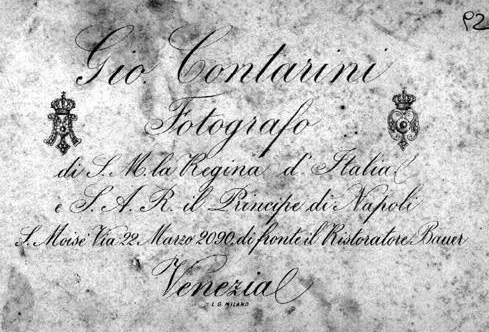 P2
Gio. Contarini
Fotografo
di S. M. la Regina d'Italia
e S. A. R. il Principe di Napoli
S. Moisè Via 22. Marzo 2090, di fronte il Ristoratore Bauer
Venezia
L. G. MILANO